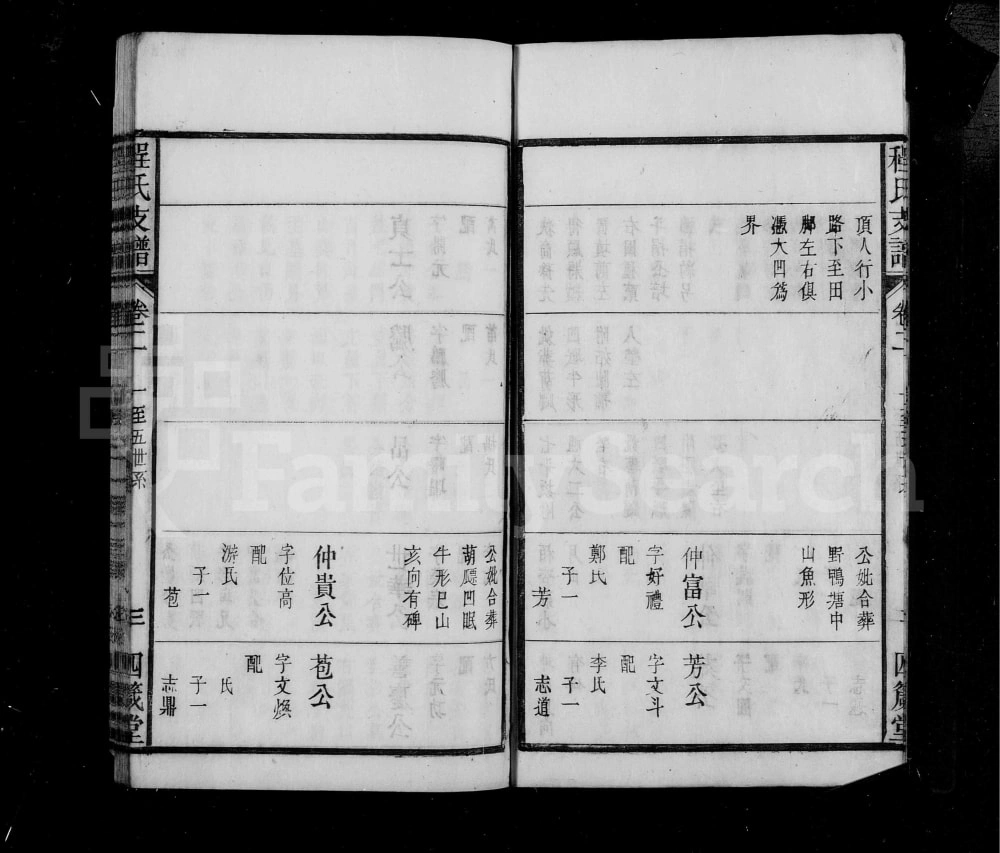 程氏支譜
卷二
四箴堂
頂人行小
路下至田
脚左右俱
憑大凹為
界
公妣合葬
野鴨塘中
山魚形
仲富公
字好禮
配
鄭氏
子一
芳
芳公
字文斗
配
李氏
子一
志道
公妣合葬
葫蘆凹眠
牛形巳山
亥向有碑
仲貴公
字位高
配
游氏
子一
苞
苞公
字文煥
配
氏
子一
志鼎
程氏支譜
卷二
一至五世系
三
四箴堂
FamilySearch